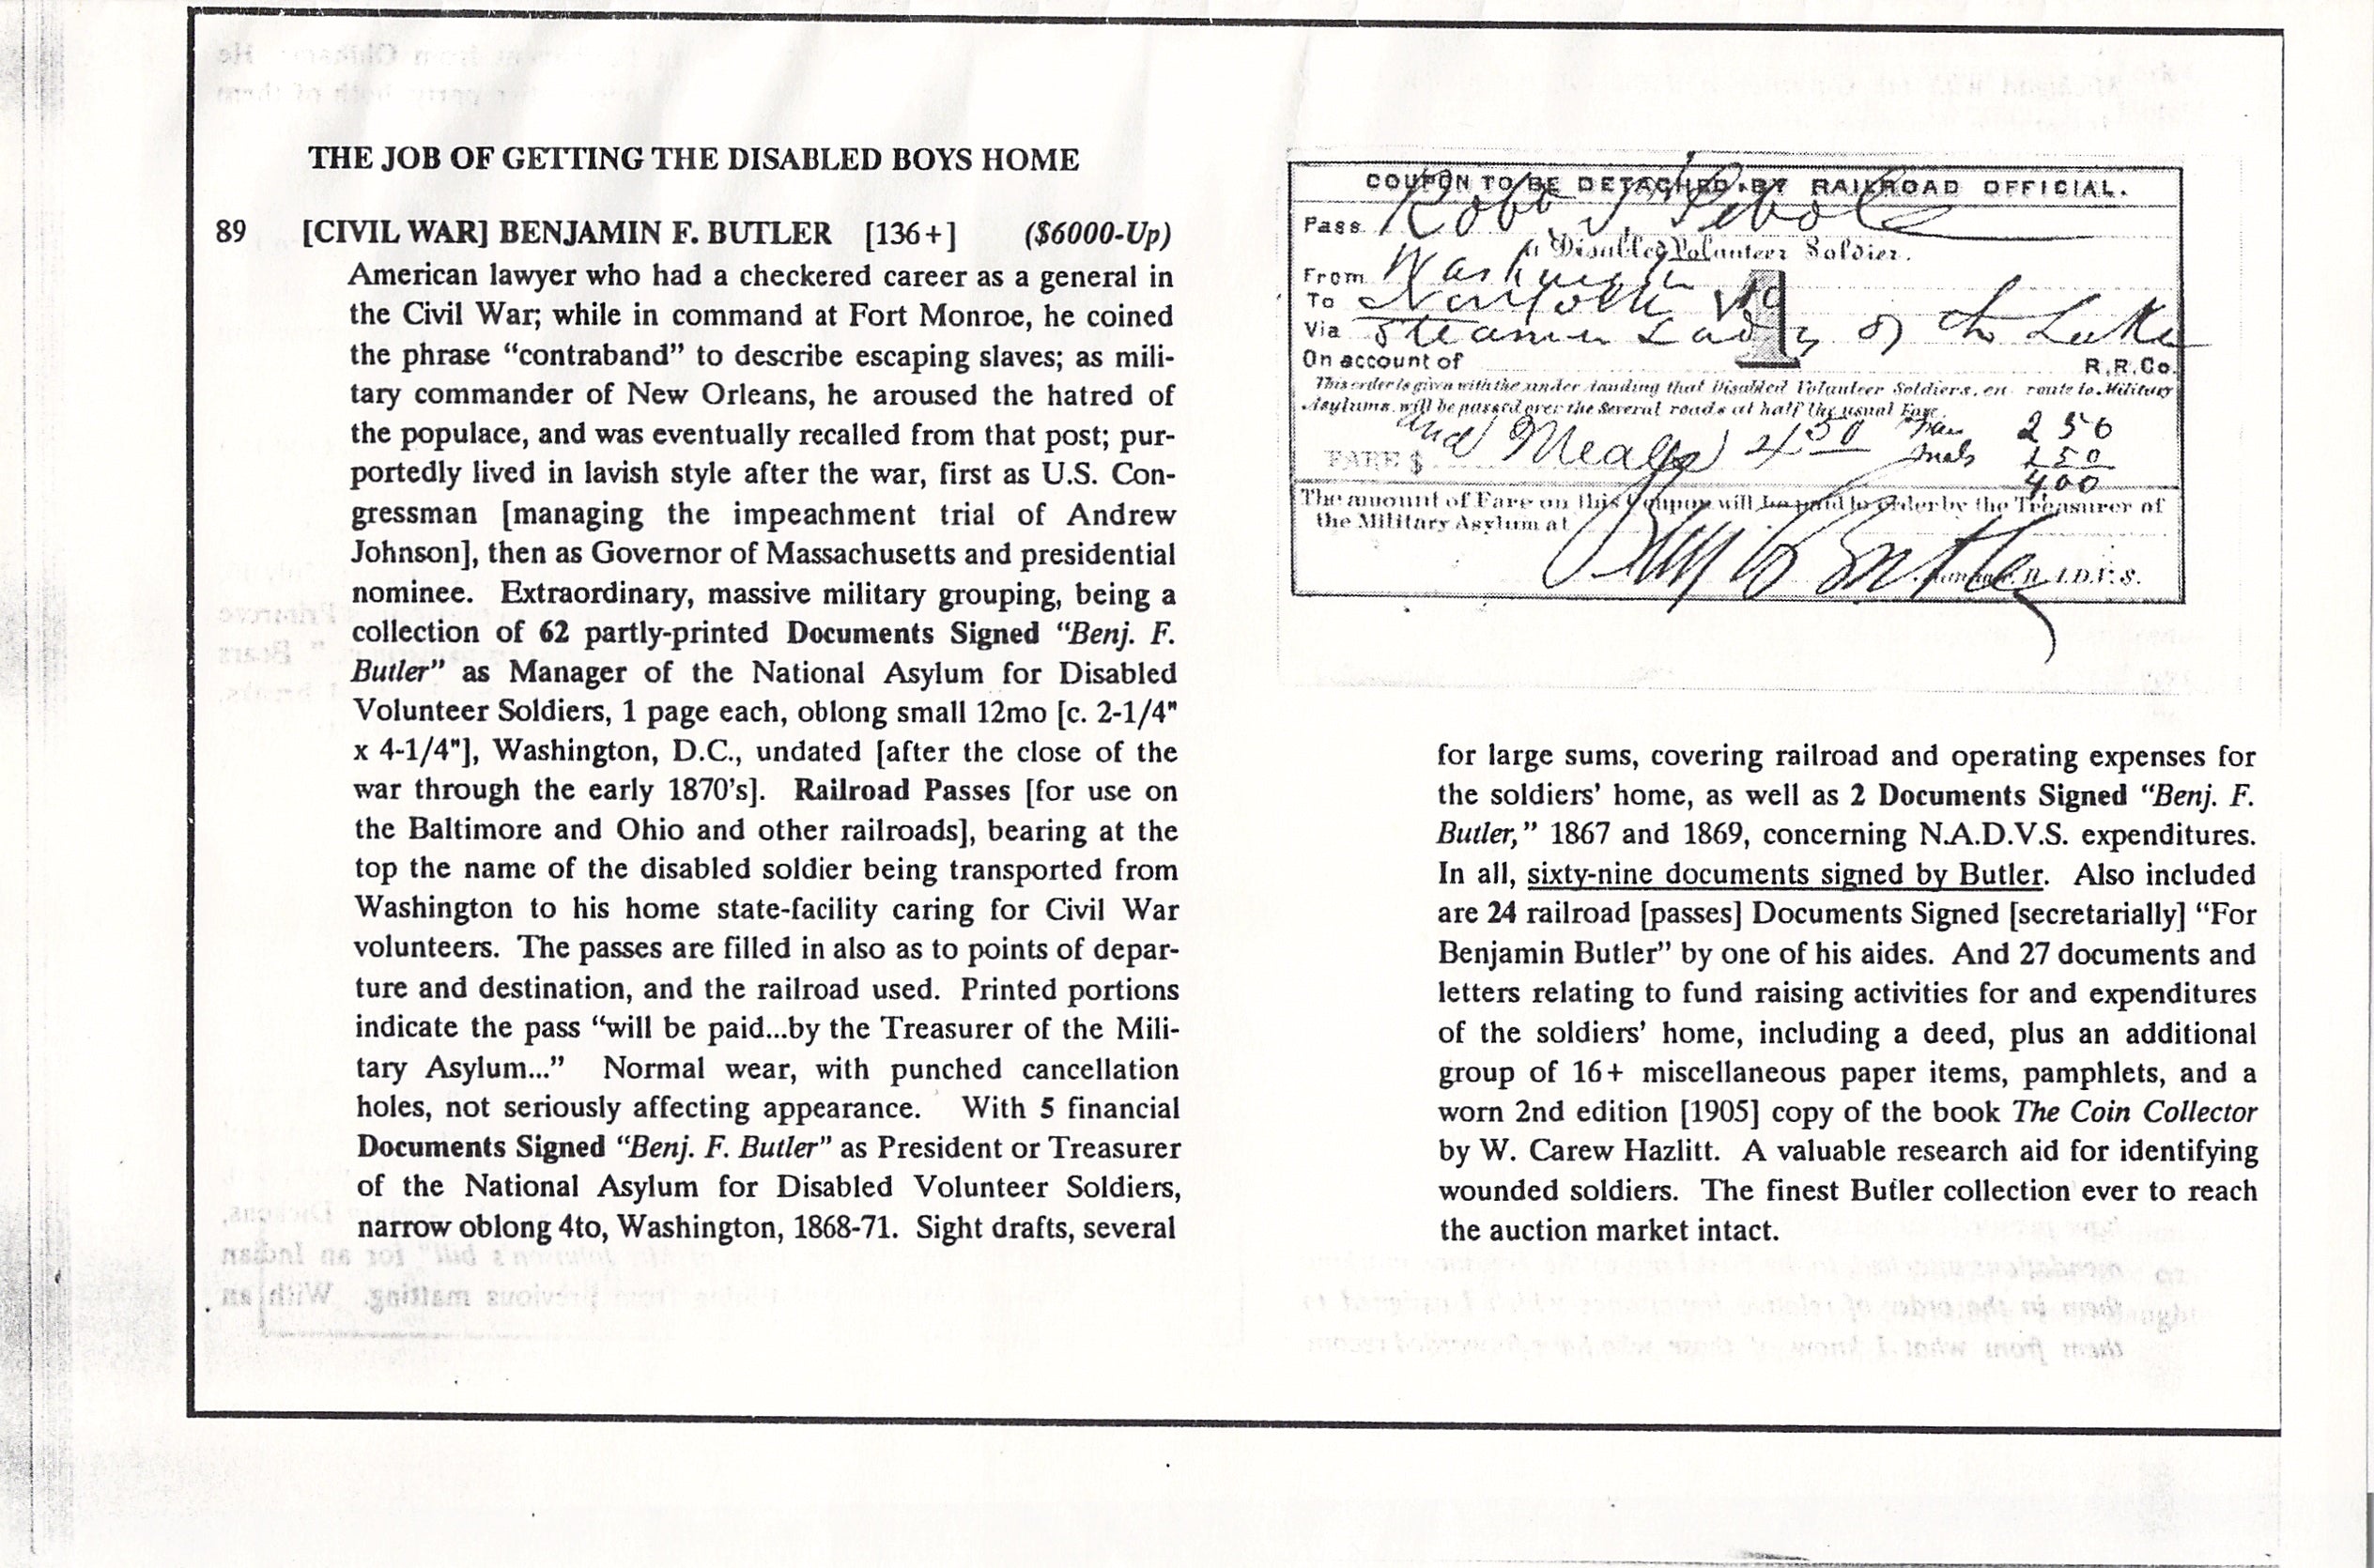 THE JOB OF GETTING THE DISABLED BOYS HOME
89 [CIVIL WAR] BENJAMIN F. BUTLER [136+] ($6000-Up)
American lawyer who had a checkered career as a general in
the Civil War; while in command at Fort Monroe, he coined
the phrase “contraband” to describe escaping slaves; as mili-
tary commander of New Orleans, he aroused the hatred of
the populace, and was eventually recalled from that post; pur-
portedly lived in lavish style after the war, first as U.S. Con-
gressman [managing the impeachment trial of Andrew
Johnson], then as Governor of Massachusetts and presidential
nominee. Extraordinary, massive military grouping, being a
collection of 62 partly-printed Documents Signed “Benj. F.
Butler” as Manager of the National Asylum for Disabled
Volunteer Soldiers, 1 page each, oblong small 12mo [c. 2-1/4"
x 4-1/4"], Washington, D.C., undated [after the close of the
war through the early 1870’s]. Railroad Passes [for use on
the Baltimore and Ohio and other railroads], bearing at the
top the name of the disabled soldier being transported from
Washington to his home state-facility caring for Civil War
volunteers. The passes are filled in also as to points of depar-
ture and destination, and the railroad used. Printed portions
indicate the pass “will be paid...by the Treasurer of the Mili-
tary Asylum...” Normal wear, with punched cancellation
holes, not seriously affecting appearance. With 5 financial
Documents Signed “Benj. F. Butler” as President or Treasurer
of the National Asylum for Disabled Volunteer Soldiers,
narrow oblong 4to, Washington, 1868-71. Sight drafts, several
COUPON TO BE DETACHED BY RAILROAD OFFICIAL.
Pass Robt
a Disabled Volunteer Soldier.
From Washington
To Norfolk Va
Via Steamer Lady of the Lake
On account of R.R.Co.
This order is given with the understanding that Disabled Volunteer Soldiers, en route to Military
Asylums, will be passed over the Several roads at half the usual Fare.
FARE $ and Meals 4 50 Fare 2 50
Meals 1 50
4 00
The amount of Fare on this Coupon will be paid to order by the Treasurer of
the Military Asylum at
Benj F Butler
1
for large sums, covering railroad and operating expenses for
the soldiers’ home, as well as 2 Documents Signed “Benj. F.
Butler,” 1867 and 1869, concerning N.A.D.V.S. expenditures.
In all, sixty-nine documents signed by Butler. Also included
are 24 railroad [passes] Documents Signed [secretarially] “For
Benjamin Butler” by one of his aides. And 27 documents and
letters relating to fund raising activities for and expenditures
of the soldiers’ home, including a deed, plus an additional
group of 16+ miscellaneous paper items, pamphlets, and a
worn 2nd edition [1905] copy of the book The Coin Collector
by W. Carew Hazlitt. A valuable research aid for identifying
wounded soldiers. The finest Butler collection ever to reach
the auction market intact.